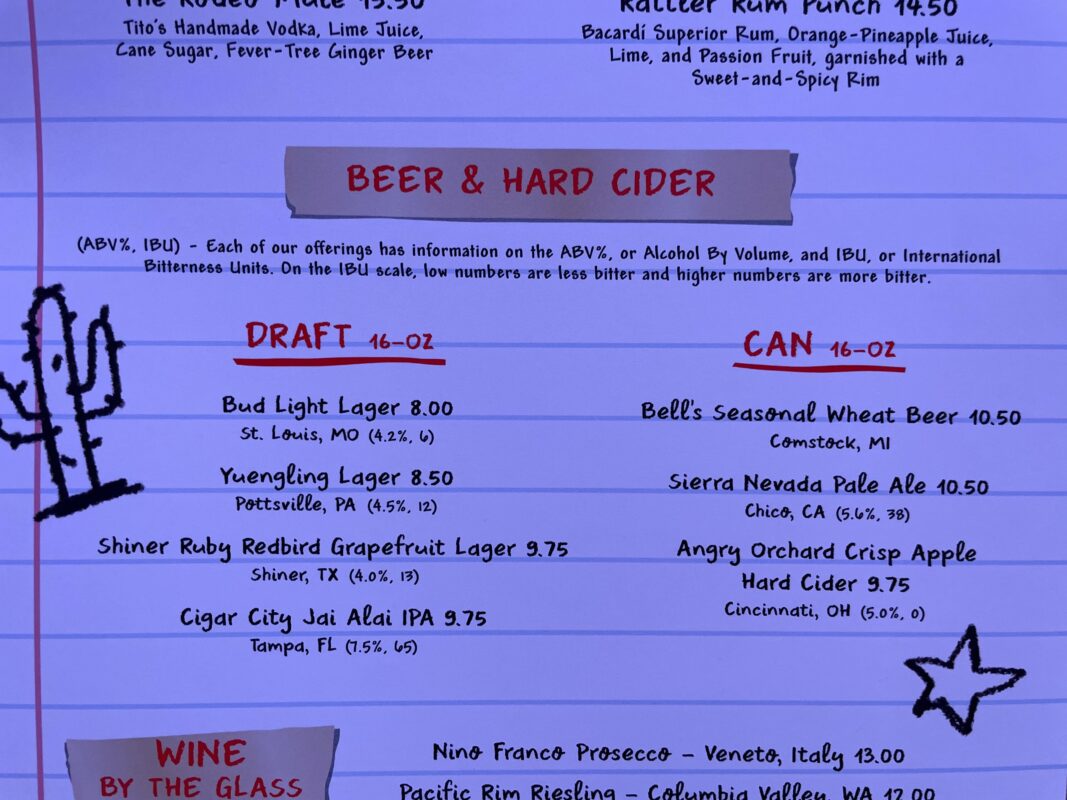 The Rodeo Mule 13.50
Tito's Handmade Vodka, Lime Juice,
Cane Sugar, Fever-Tree Ginger Beer
Rattler Rum Punch 14.50
Bacardí Superior Rum, Orange-Pineapple Juice,
Lime, and Passion Fruit, garnished with a
Sweet-and-Spicy Rim
BEER & HARD CIDER
(ABV%, IBU) - Each of our offerings has information on the ABV%, or Alcohol By Volume, and IBU, or International
Bitterness Units. On the IBU scale, low numbers are less bitter and higher numbers are more bitter.
DRAFT 16-OZ
Bud Light Lager 8.00
St. Louis, MO (4.2%, 6)
Yuengling Lager 8.50
Pottsville, PA (4.5%, 12)
Shiner Ruby Redbird Grapefruit Lager 9.75
Shiner, TX (4.0%, 13)
Cigar City Jai Alai IPA 9.75
Tampa, FL (7.5%, 65)
CAN 16-OZ
Bell's Seasonal Wheat Beer 10.50
Comstock, MI
Sierra Nevada Pale Ale 10.50
Chico, CA (5.6%, 38)
Angry Orchard Crisp Apple
Hard Cider 9.75
Cincinnati, OH (5.0%, 0)
WINE
BY THE GLASS
Nino Franco Prosecco – Veneto, Italy 13.00
Pacific Rim Riesling – Columbia Valley, WA 12.00